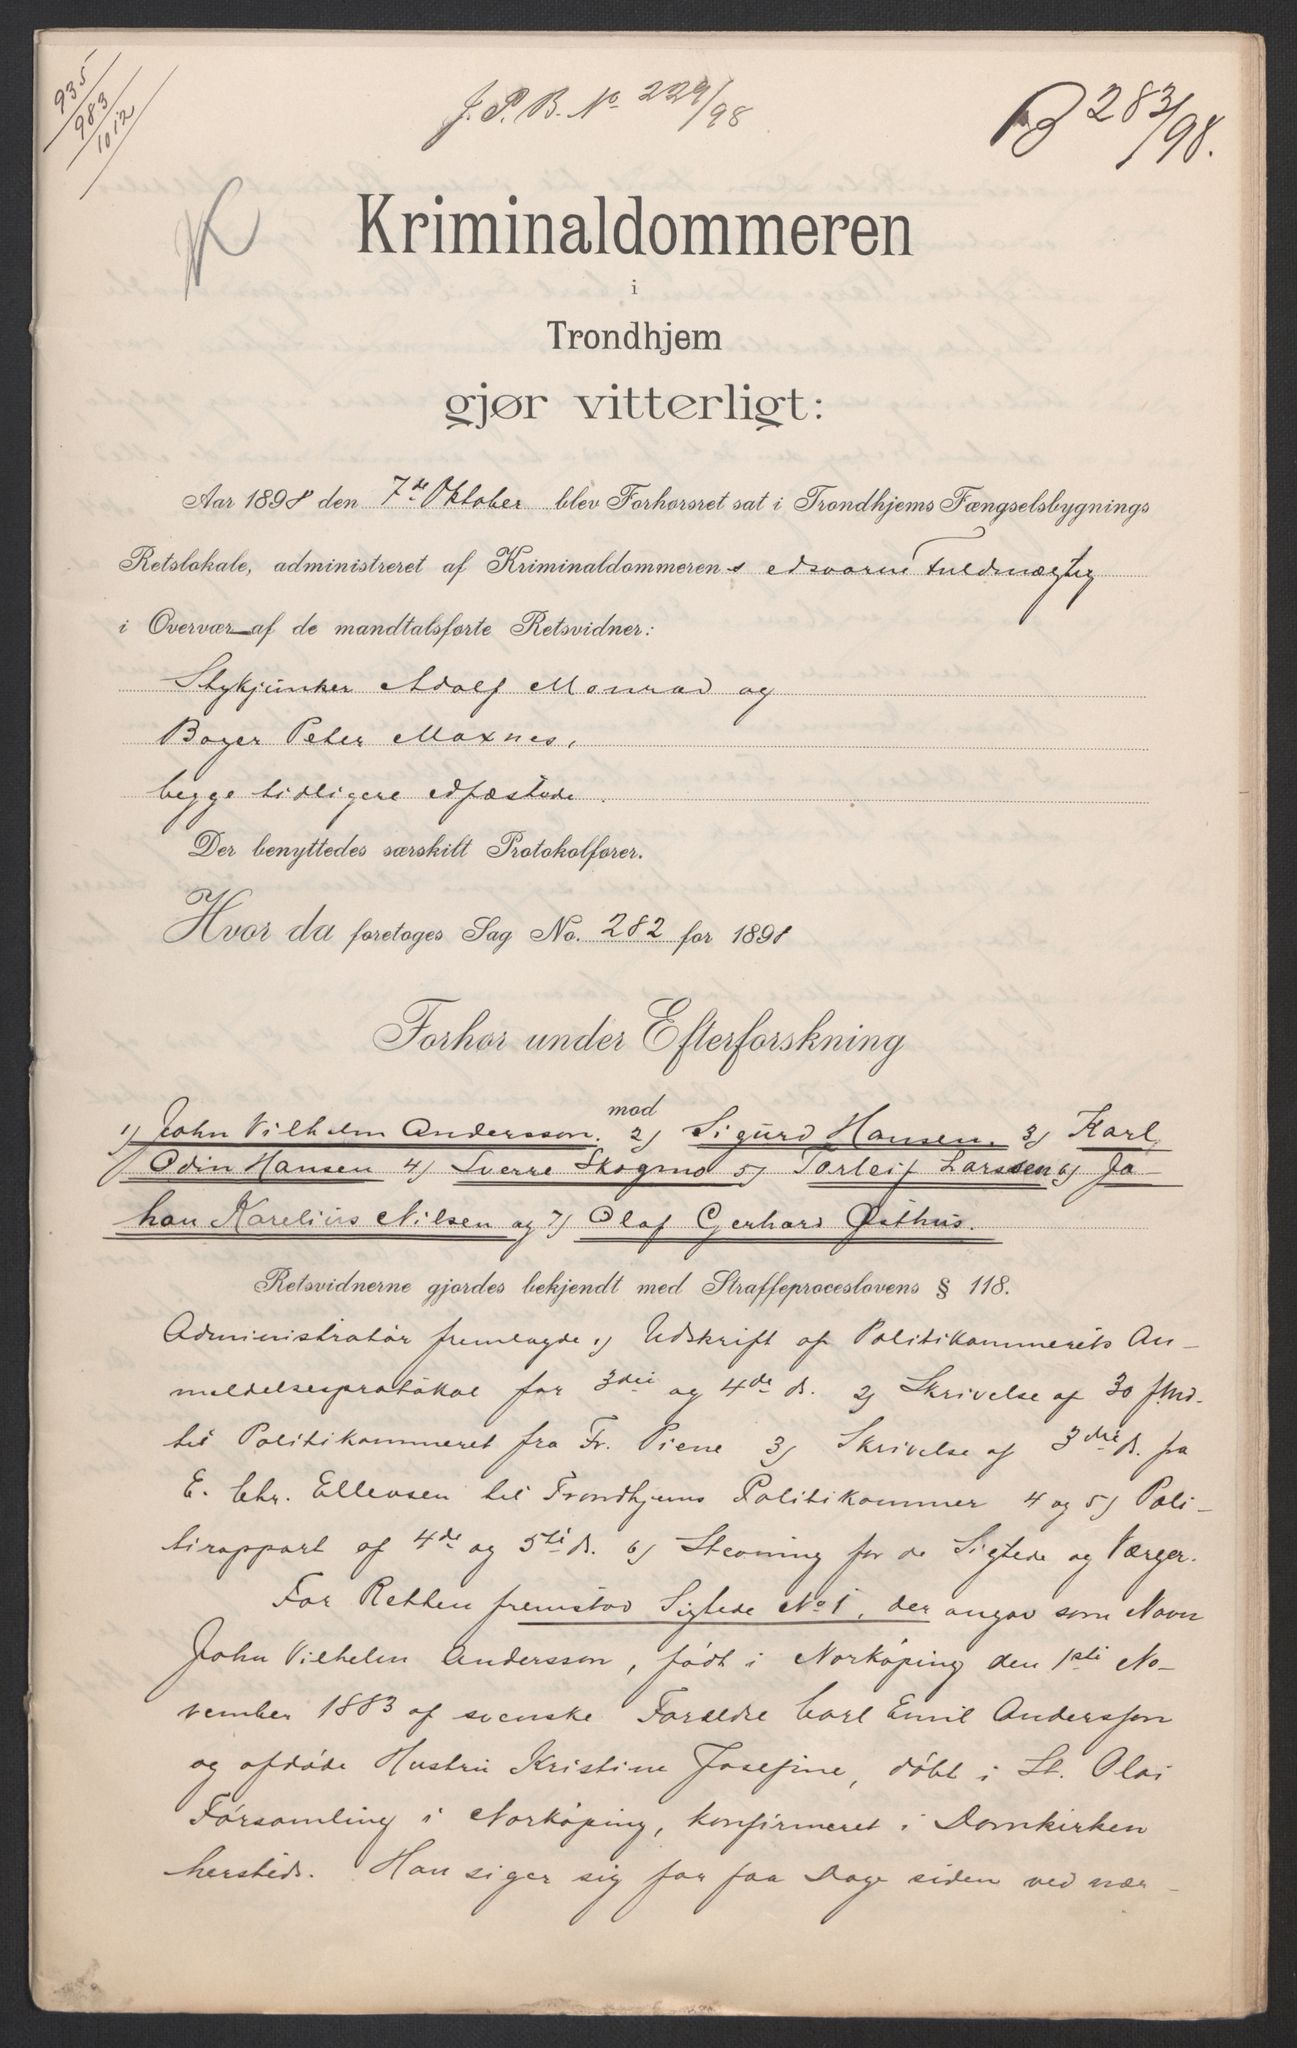 935
983
1012
J. P. B. No 229/98
B 283/98.
Kriminaldommeren
i
Trondhjem
gjør vitterligt:
Aar 1898 den 7de Oktober blev Forhørsret sat i Trondhjems Fængselsbygnings
Retslokale, administreret af Kriminaldommerens edsvorne Fuldmægtig
i Overvær af de mandtalsførte Retsvidner:
Stykjunker Adolf Monrad og
Bager Peter Moxnes,
begge tidligere edfæstede.
Der benyttedes særskilt Protokolfører.
Hvor da foretoges Sag No. 282 for 1898
Forhør under Efterforskning
mod
1) John Vilhelm Andersson. 2) Sigurd Hansen. 3) Karl
Odin Hansen 4) Sverre Skogmo 5) Torleif Larssen 6) Jo-
han Karelius Nilsen og 7) Olaf Gerhard Østhus.
Retsvidnerne gjordes bekjendt med Straffeproceslovens § 118.
Administrator fremlagde 1) Udskrift af Politikammerets An-
meldelsesprotokol for 3die og 4de ds. 2) Skrivelse af 30 f. Md.
til Politikammeret fra Fr. Piene 3) Skrivelse af 3die ds. fra
E. Chr. Ellevsen til Trondhjems Politikammer 4 og 5) Poli-
tirapport af 4de og 5te ds. 6) Stevning for de Sigtede og Værger.
For Retten fremstod Sigtede No 1, der angav som Navn
John Vilhelm Andersson, født i Norköping den 1ste No-
vember 1883 af svenske Forældre Carl Emil Andersson
og afdøde Hustru Kristine Josefine, døbt i St. Olai
Församling i Norköping, konfirmeret i Domkirken
hersteds. Han siger sig for faa Dage siden ved nær-